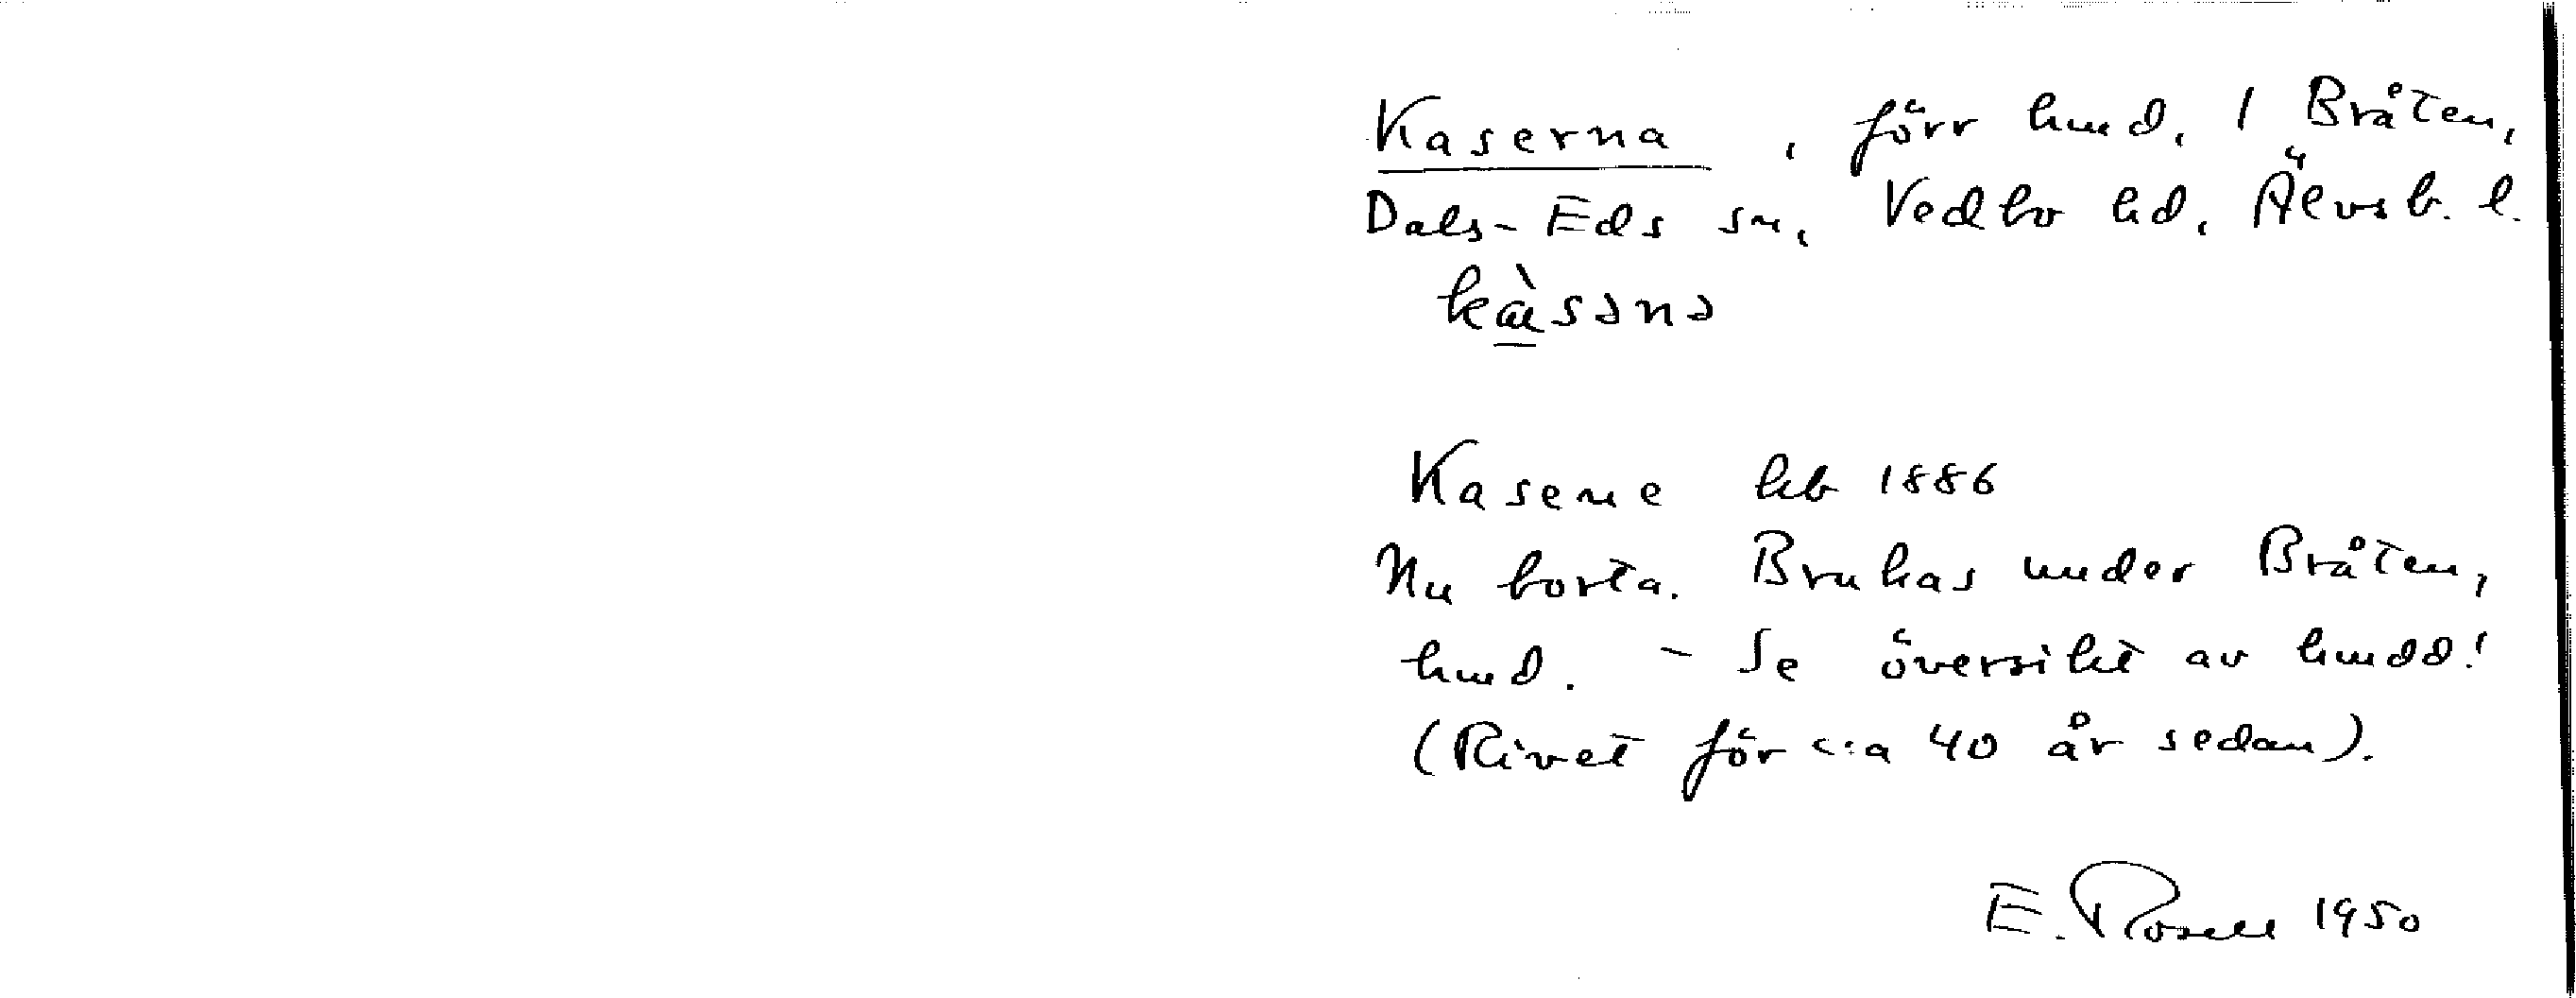 Kaserna, förr hmd, 1 Bråten,
Dals-Eds sn, Vedbo hd, Älvsb. l.
kàsənə
Kasene hb 1886
Nu borta. Brukas under Bråten,
hmd. - Se översikt av hmdd!
(Rivet för c:a 40 år sedan).
E. Rosell 1950